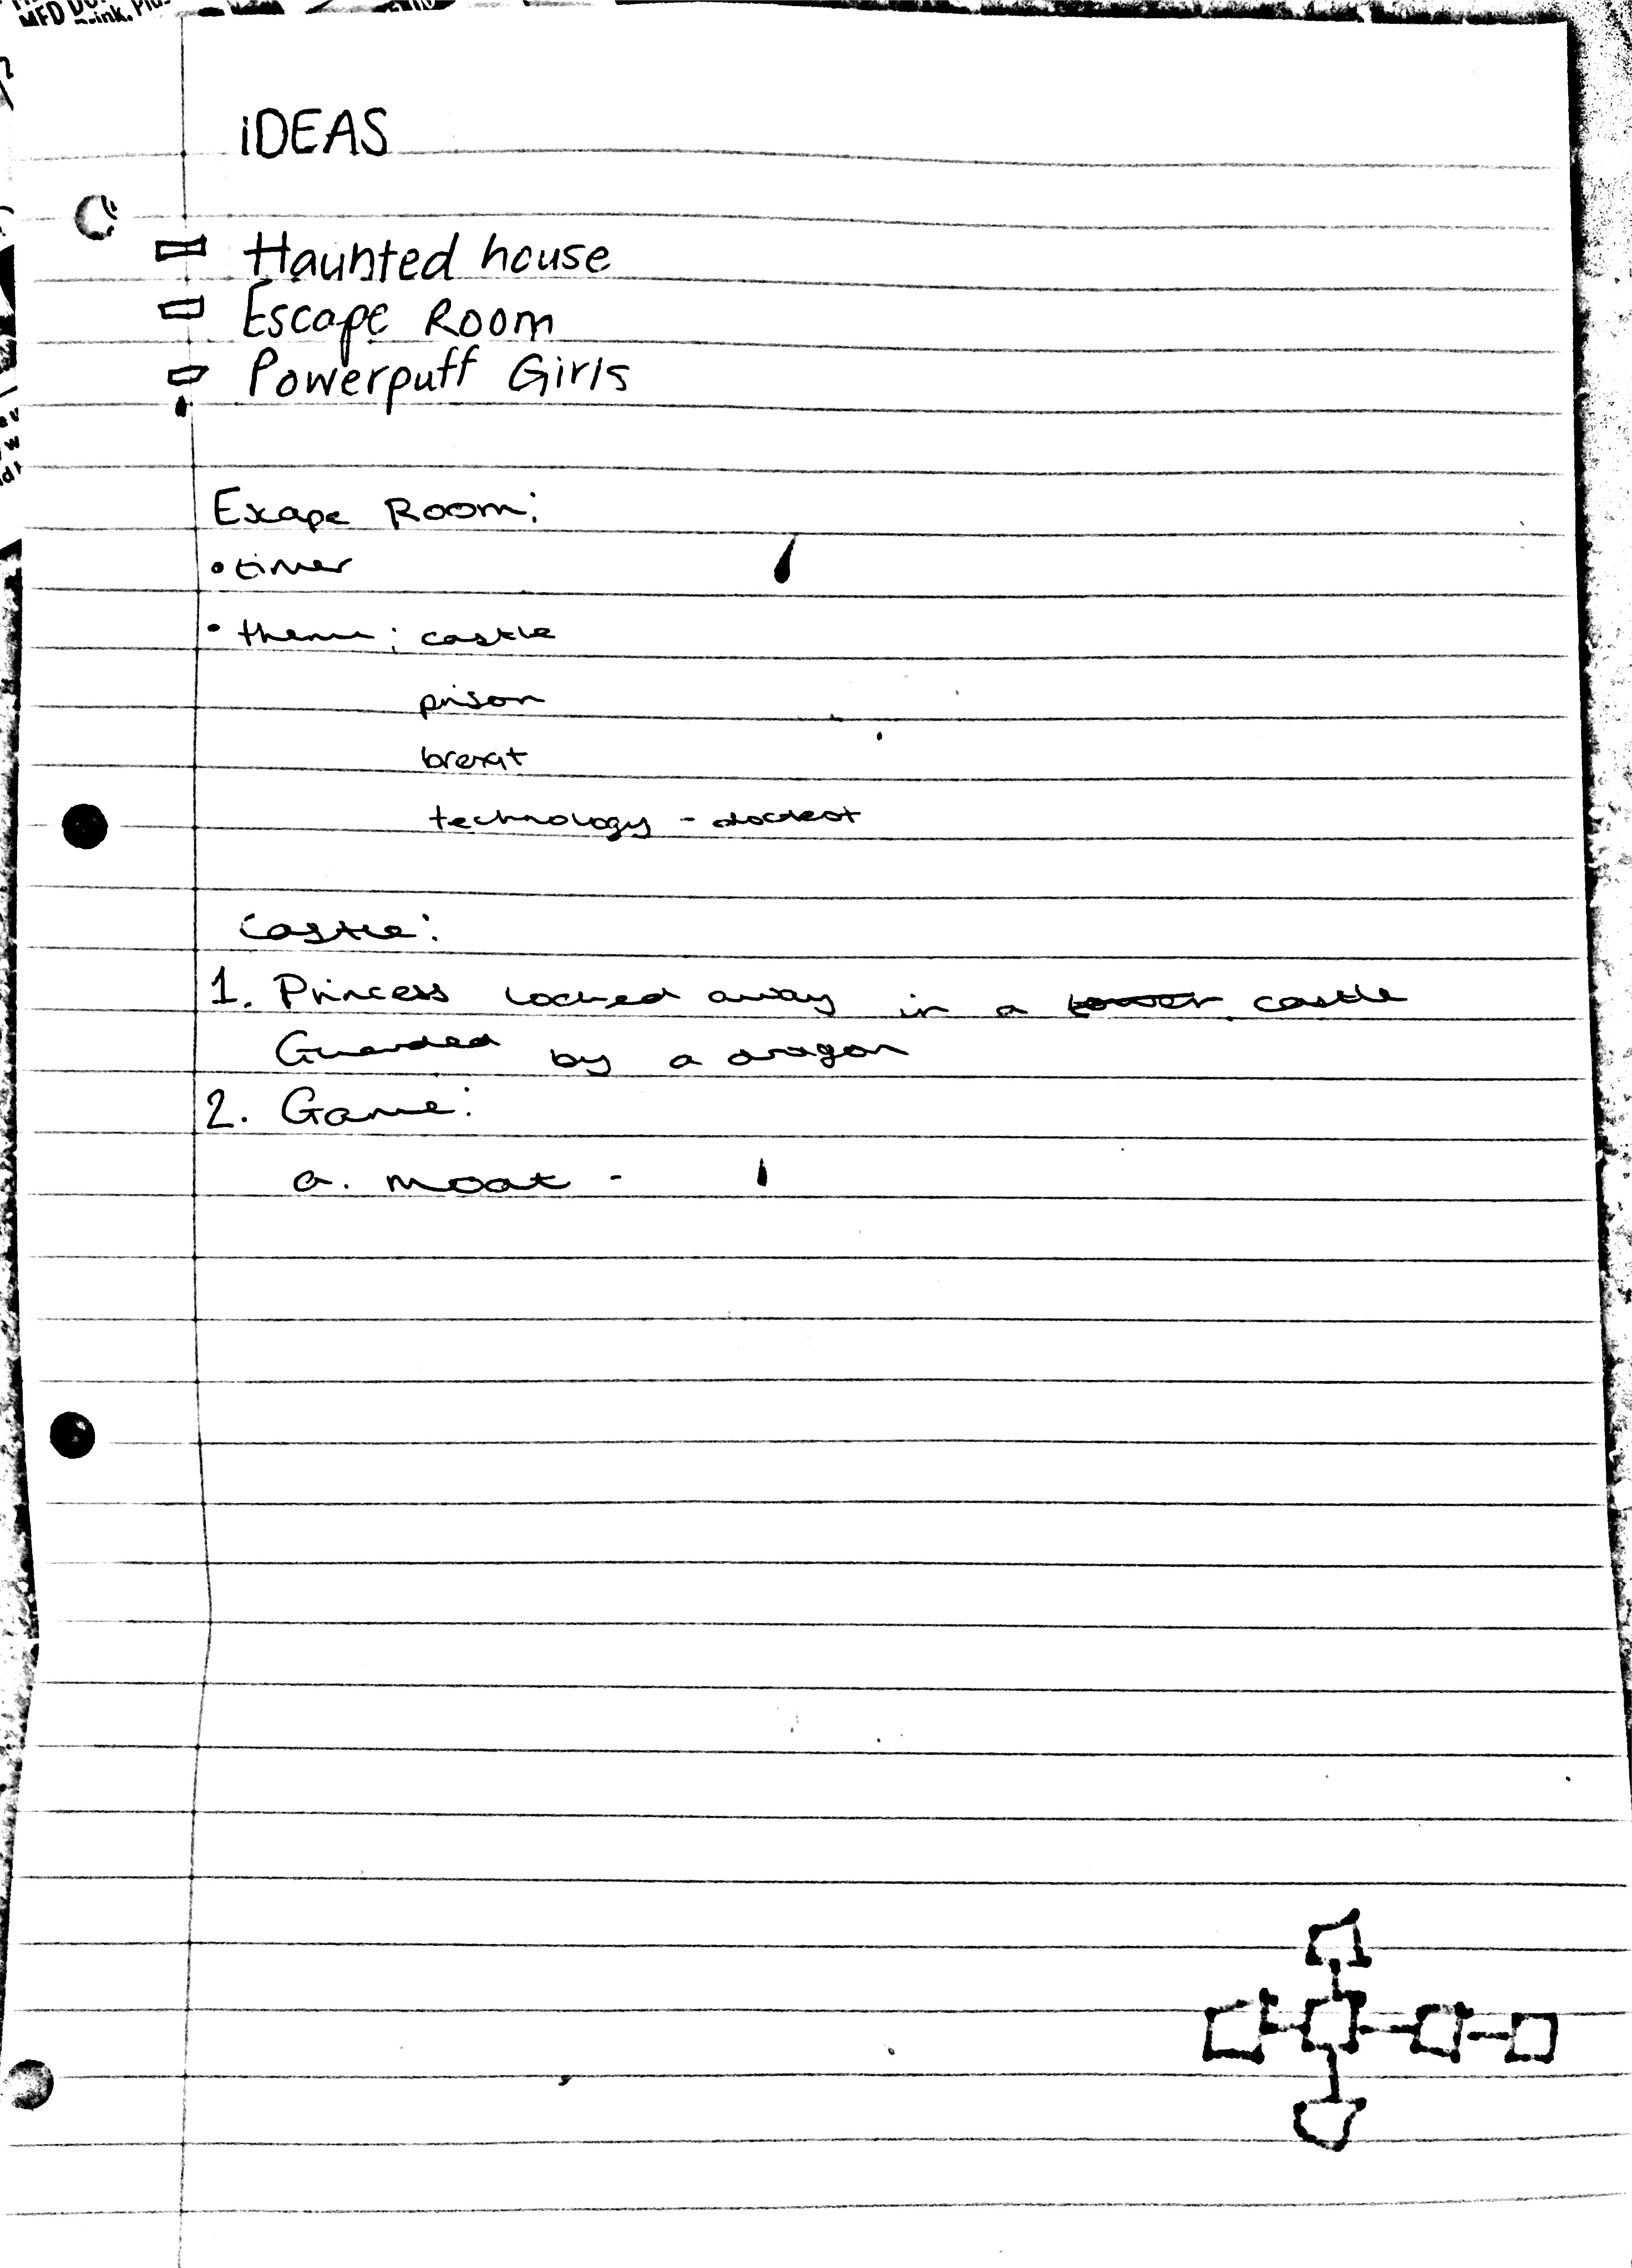 iDEAS
Haunted house
Escape Room
Powerpuff Girls
Escape Room:
• timer
• theme: castle
prison
brexit
technology -
Castle:
1. Princess locked away in a tower castle
Guarded by a dragon
2. Game:
a. moat -